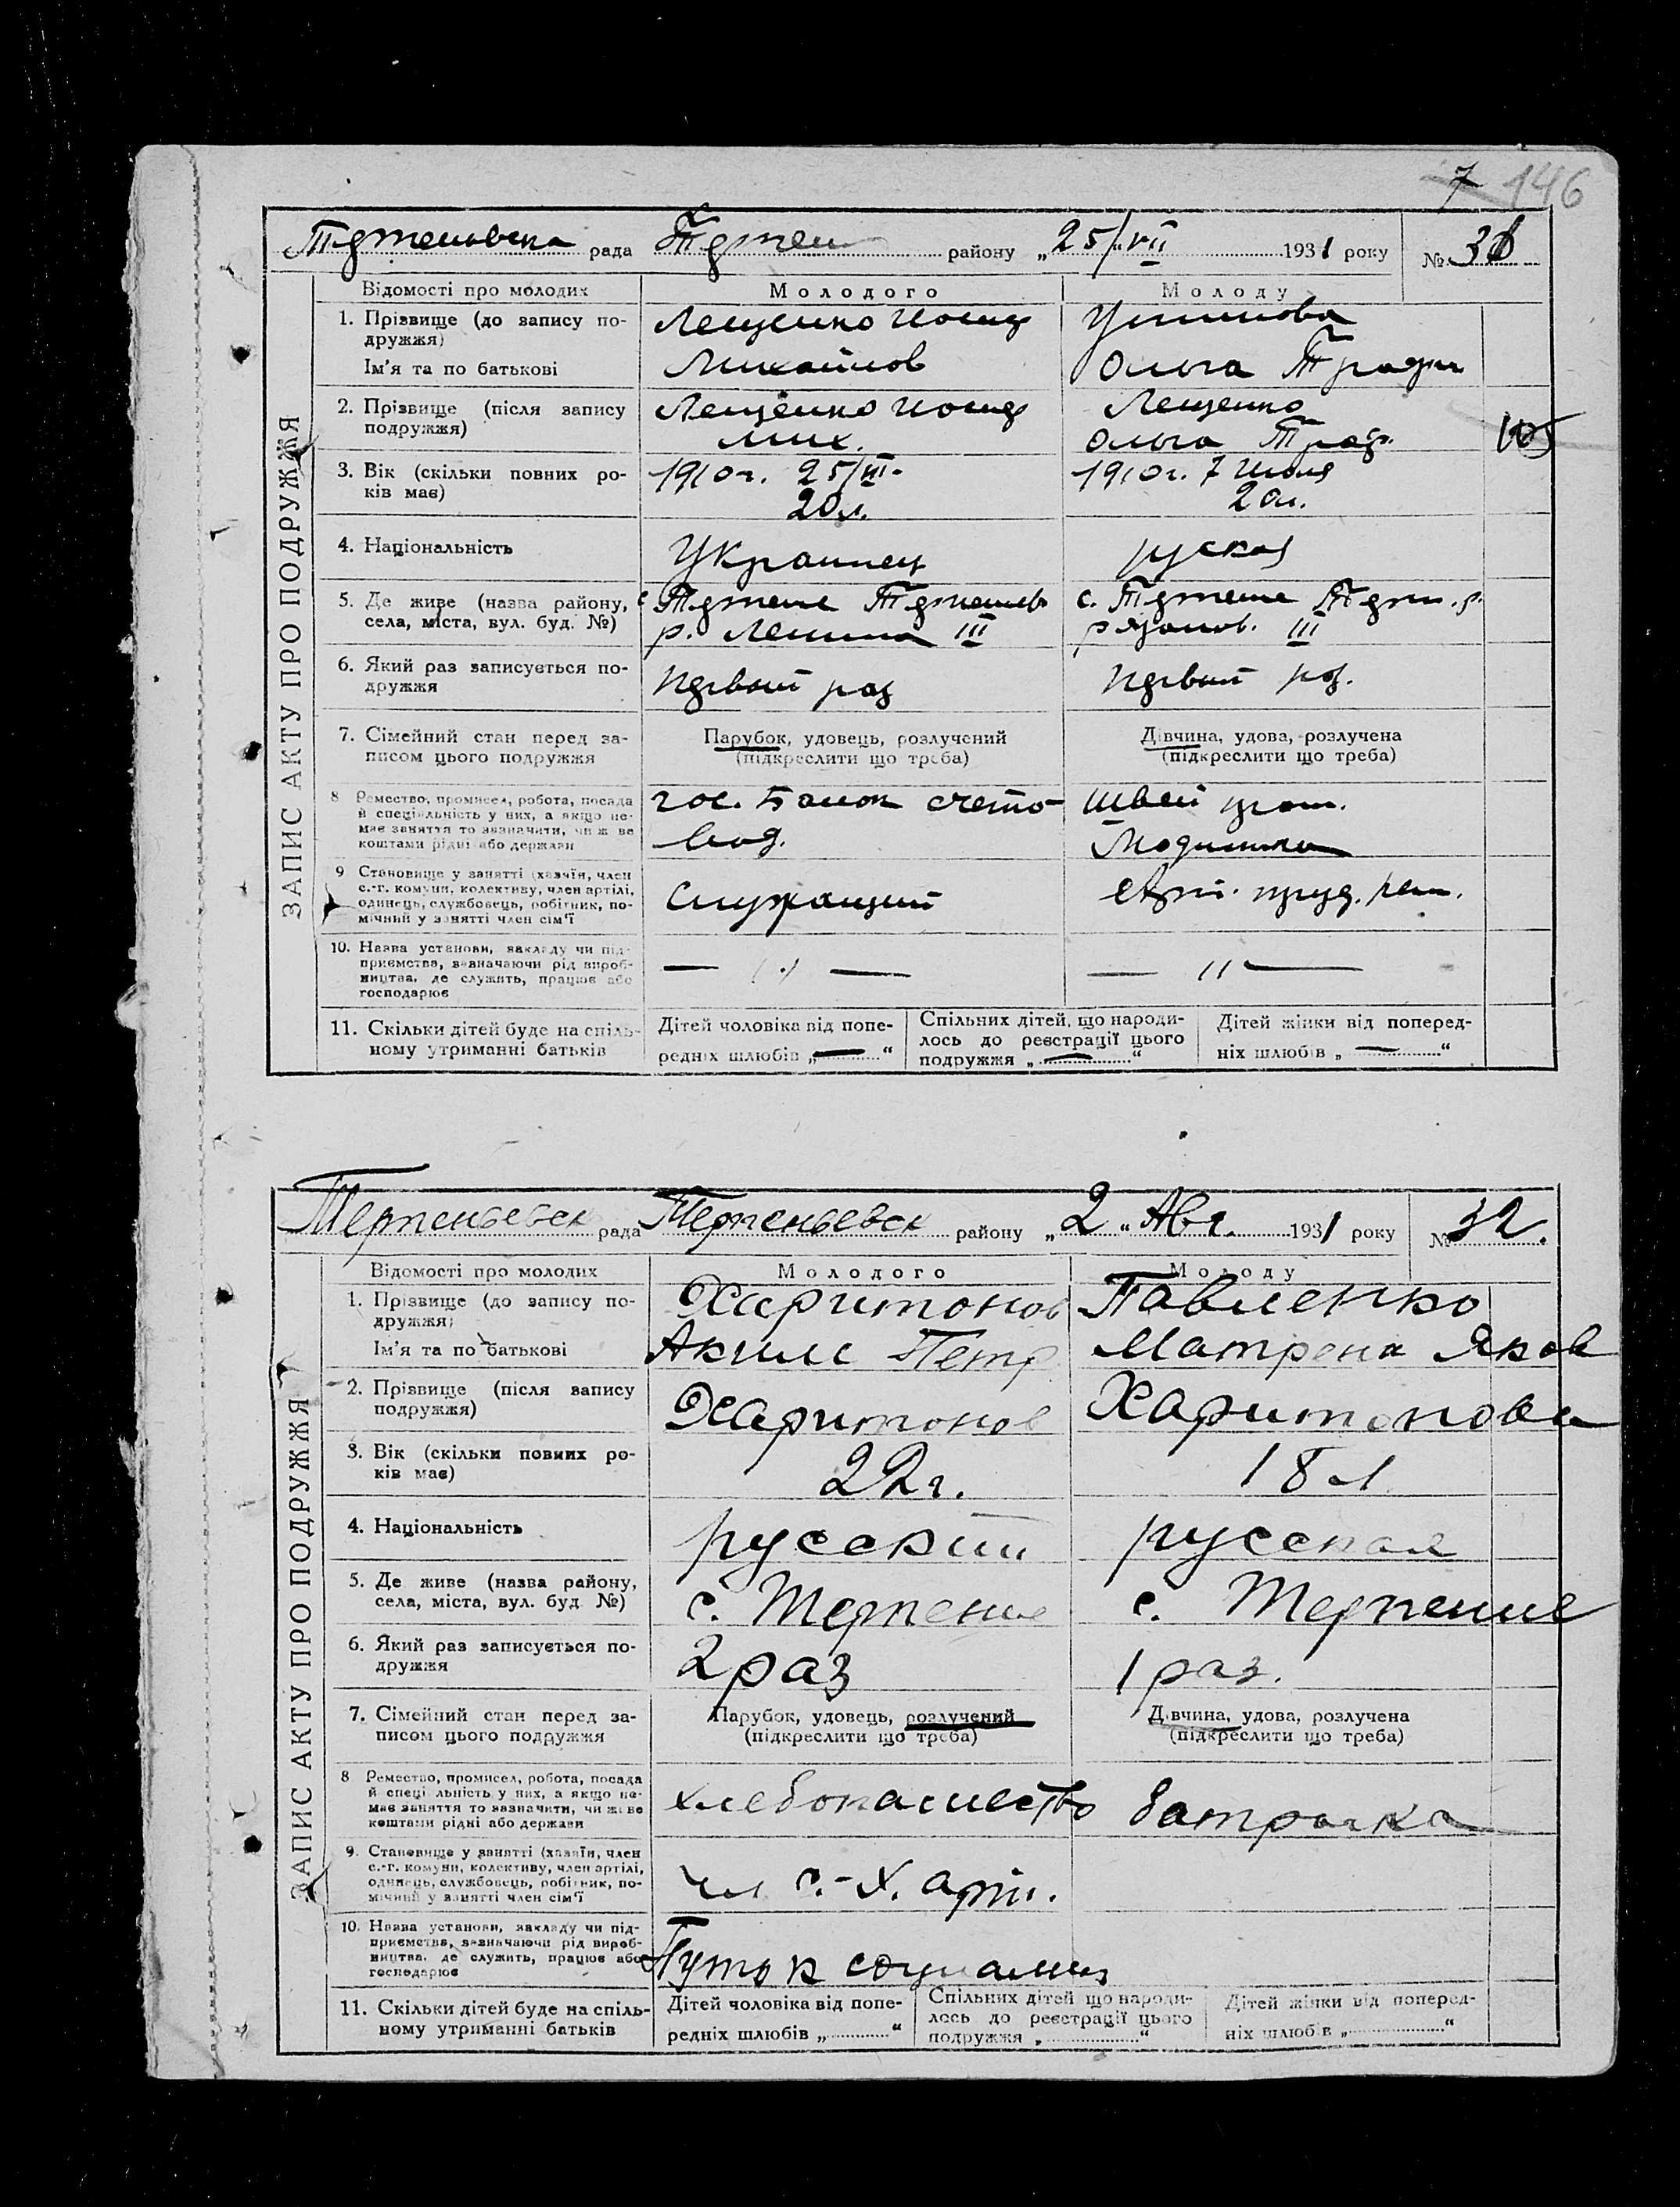 7 146
рада району „25/VII 1931 року № 31
ЗАПИС АКТУ ПРО ПОДРУЖЖЯ
Відомості про молодих Молодого Молоду
1. Прізвище (до запису по-
дружжя)
Лещенко Иосиф
Ім'я та по батькові Михайлов Ольга
2. Прізвище (після запису
подружжя)
Лещенко Иосиф Лещенко
Мих. Ольга Троф.
3. Вік (скільки повних ро-
ків має)
1910 г. 25/III 1910 г. 7 Июля
20 л. 20 л.
4. Національність Украинец руская
5. Де живе (назва району,
села, міста, вул. буд. №)
р. Ленина III III
6. Який раз записується по-
дружжя
первый раз первый раз.
7. Сімейний стан перед за-
писом цього подружжя
Парубок, удовець, розлучений
(підкреслити що треба)
Дівчина, удова, розлучена
(підкреслити що треба)
8 Ремество, промисел, робота, посада
й спеціяльність у них, а якщо не-
має заняття то зазначити, чиїми
коштами рідні або держави
гос. Банок счето-
вод.
Швей пром.
Модистка
9 Становище у занятті (хазяїн, член
с.-г. комуни, колективу, член артілі,
одинець, службовець, робітник, по-
мічний у занятті член сім'ї
Служащий
10. Назва установи, закладу чи під-
приємства, зазначаючи рід вироб-
ництва, де служить, працює або
господарює
— „ — — „ —
11. Скільки дітей буде на спіль-
ному утриманні батьків
Дітей чоловіка від попе-
редніх шлюбів „—“
Спільних дітей, що народи-
лось до реєстрації цього
подружжя „—“
Дітей жінки від поперед-
ніх шлюбів „—“
105
Терпеньевск рада Терпеньевск району „2“ Авг. 1931 року № 32.
ЗАПИС АКТУ ПРО ПОДРУЖЖЯ
Відомості про молодих Молодого Молоду
1. Прізвище (до запису по-
дружжя)
Харитонов Павленко
Ім'я та по батькові Аким Петр Матрена Яков
2. Прізвище (після запису
подружжя)
Харитонов Харитонова
3. Вік (скільки повних ро-
ків має)
22 г. 18 л
4. Національність русский русская
5. Де живе (назва району,
села, міста, вул. буд. №)
с. Терпение с. Терпение
6. Який раз записується по-
дружжя
2 раз 1 раз.
7. Сімейний стан перед за-
писом цього подружжя
Парубок, удовець, розлучений
(підкреслити що треба)
Дівчина, удова, розлучена
(підкреслити що треба)
8 Ремество, промисел, робота, посада
й спеціяльність у них, а якщо не-
має заняття то зазначити, чиїми
коштами рідні або держави
хлебопашество батрачка
9. Становище у занятті (хазяїн, член
с.-г. комуни, колективу, член артілі,
одинець, службовець, робітник, по-
мічний у занятті член сім'ї
чл с.-х. арт.
10. Назва установи, закладу чи під-
приємства, зазначаючи рід вироб-
ництва, де служить, працює або
господарює
Путь к социализ
11. Скільки дітей буде на спіль-
ному утриманні батьків
Дітей чоловіка від попе-
редніх шлюбів „“
Спільних дітей що народи-
лось до реєстрації цього
подружжя „“
Дітей жінки від поперед-
ніх шлюбів „“